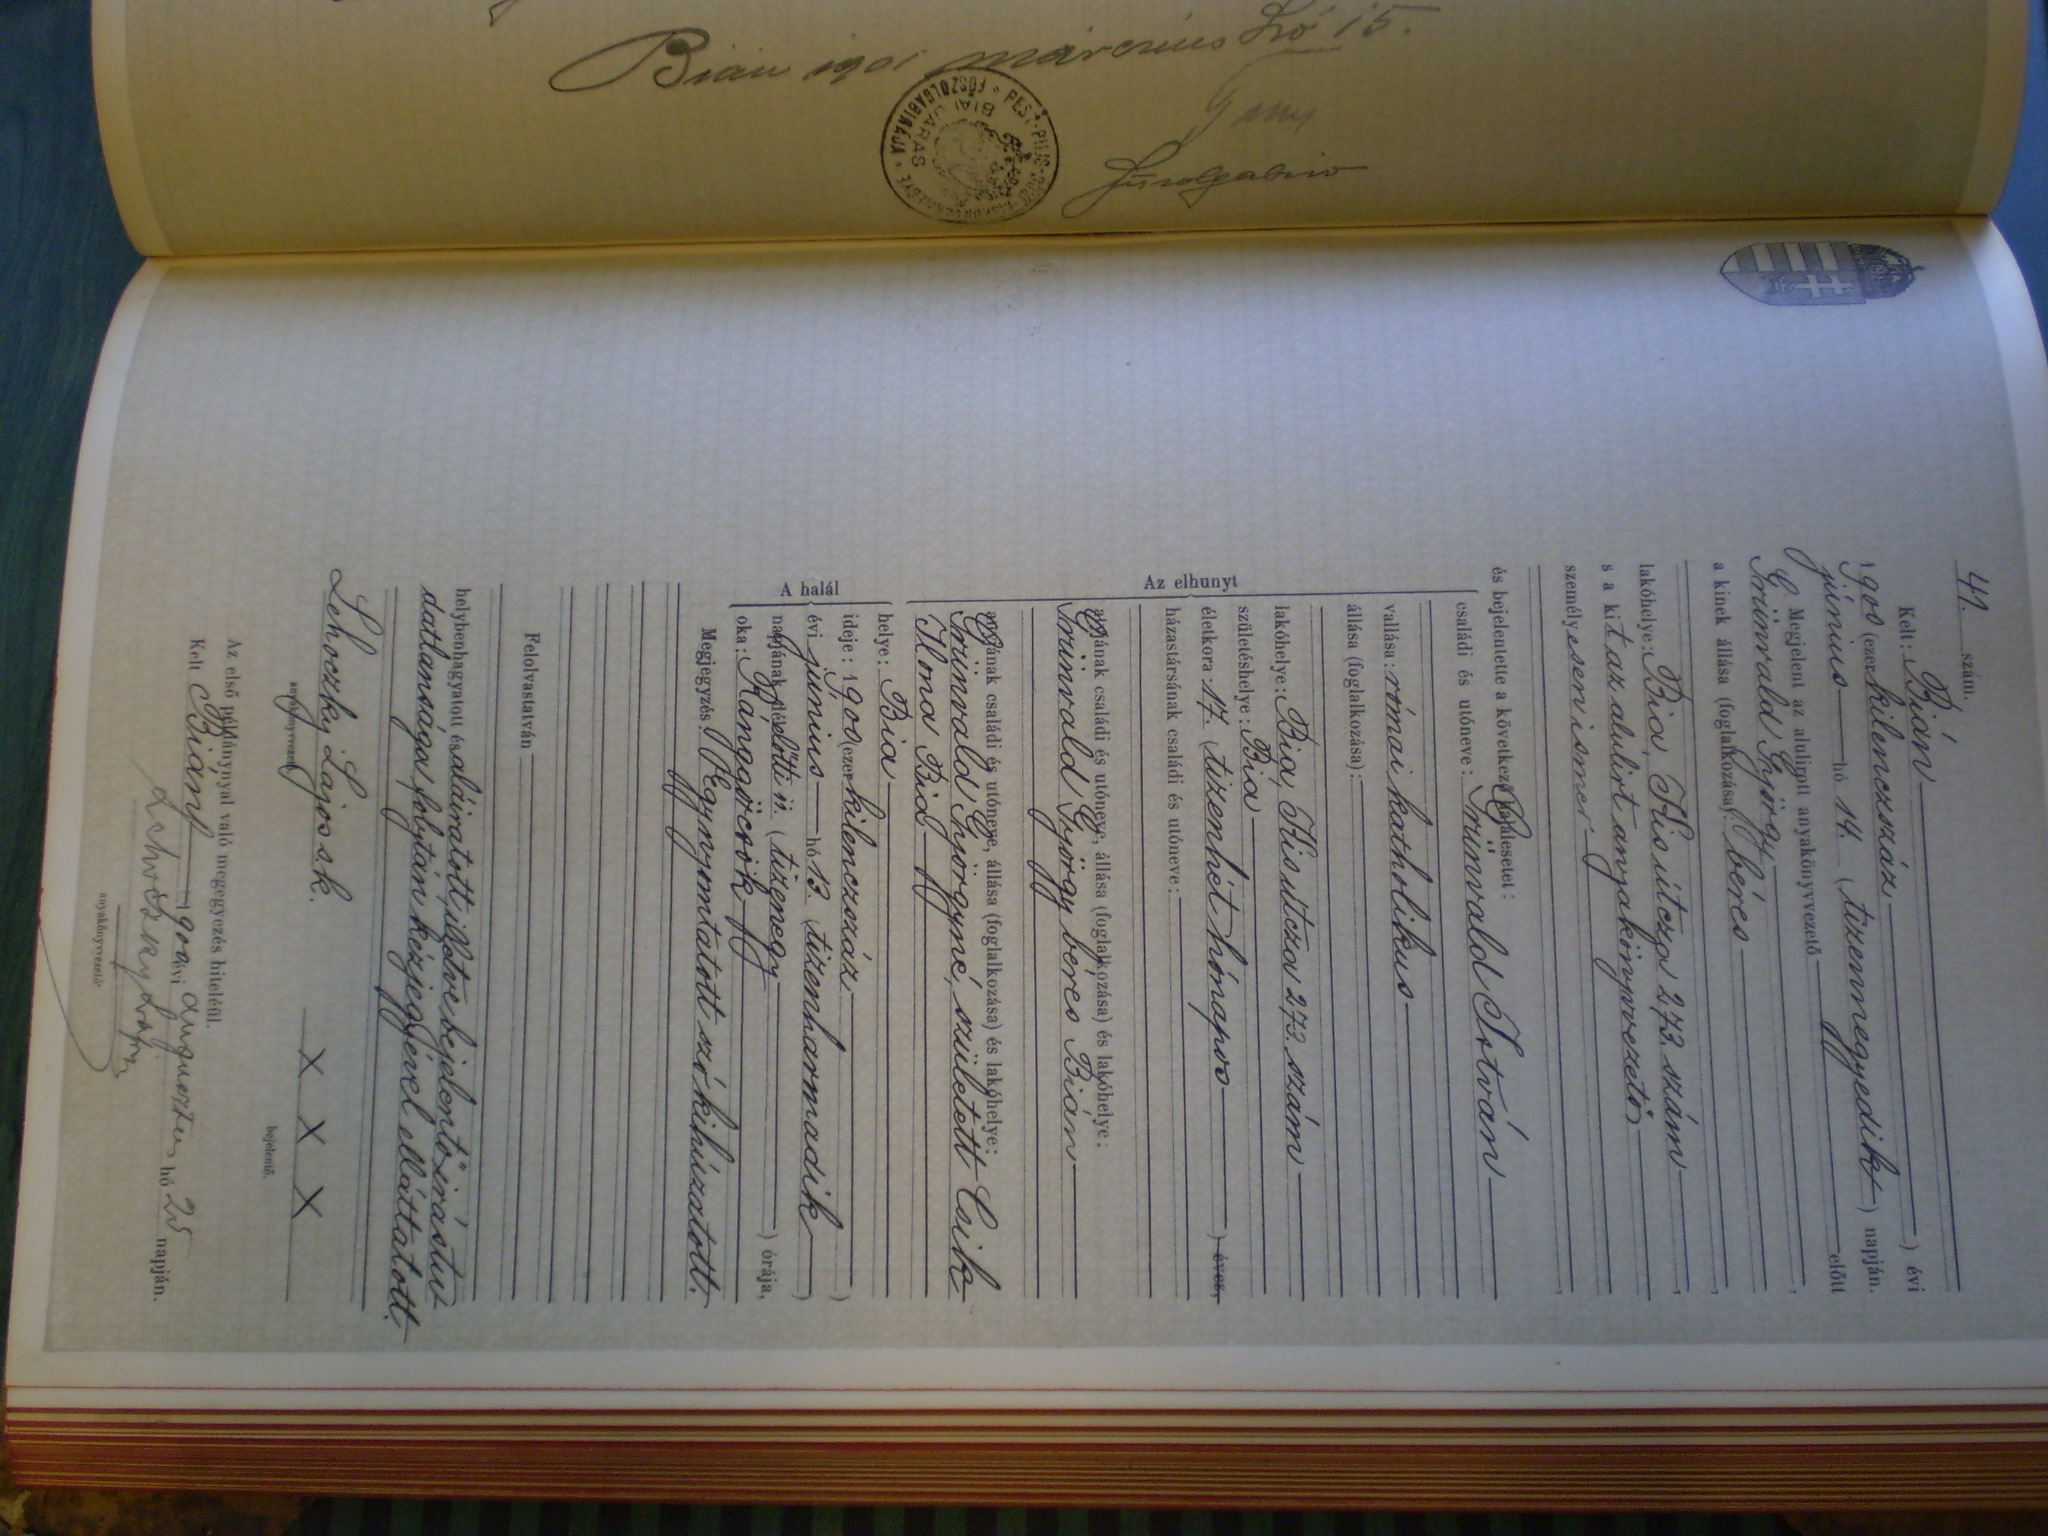 Bián 1901 márczius hó 15.
főszolgabiró
PEST-PILIS-
BIAI JÁRÁS FŐSZOLGABIRÁJA
41. szám.
Kelt: Bián
1900 (ezerkilenczszáz ) évi
június hó 14. (tizennegyedik) napján.
Megjelent az alulirott anyakönyvvezető előtt
Grünvald György
a kinek állása (foglalkozása) béres
lakóhelye: Bia, Kis útcza 273. szám
s a kit az alulirt anyakönyvvezető
személyesen ismer
és bejelentette a következő halálesetet:
családi és utóneve: Grünvald István
vallása: római katholikus
állása (foglalkozása):
lakóhelye: Bia, Kis útcza 273. szám
születéshelye: Bia
életkora: 17. (tizenhét hónapos ) éves,
házastársának családi és utóneve:
Az elhunyt
atyjának családi és utóneve, állása (foglalkozása) és lakóhelye:
Grünvald György béres Bián
anyjának családi és utóneve, állása (foglalkozása) és lakóhelye:
Grünvald Györgyné, született Csik
Ilona Bia
A halál
helye: Bia
ideje: 1900 (ezerkilenczszáz )
évi június hó 13. (tizenharmadik )
napjának délelőtti 11. (tizenegy ) órája,
oka: Rángörcsök
Megjegyzés: 1 Egy nyomtatott szó kihúzatott.
Felolvastatván
helybenhagyatott és aláiratott, illetve bejelentő irástu
datlansága folytán kézjegyével elláttatott.
Lehoczky Lajos s.k. X X X
anyakönyvvezető bejelentő.
Az első példánynyal való megegyezés hiteléül.
Kelt Bián, 1900 évi augusztus hó 25 napján.
Lehoczky Lajos
anyakönyvvezető